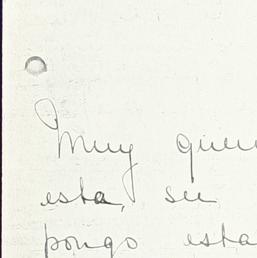 Muy quer
esta, su
pongo esta